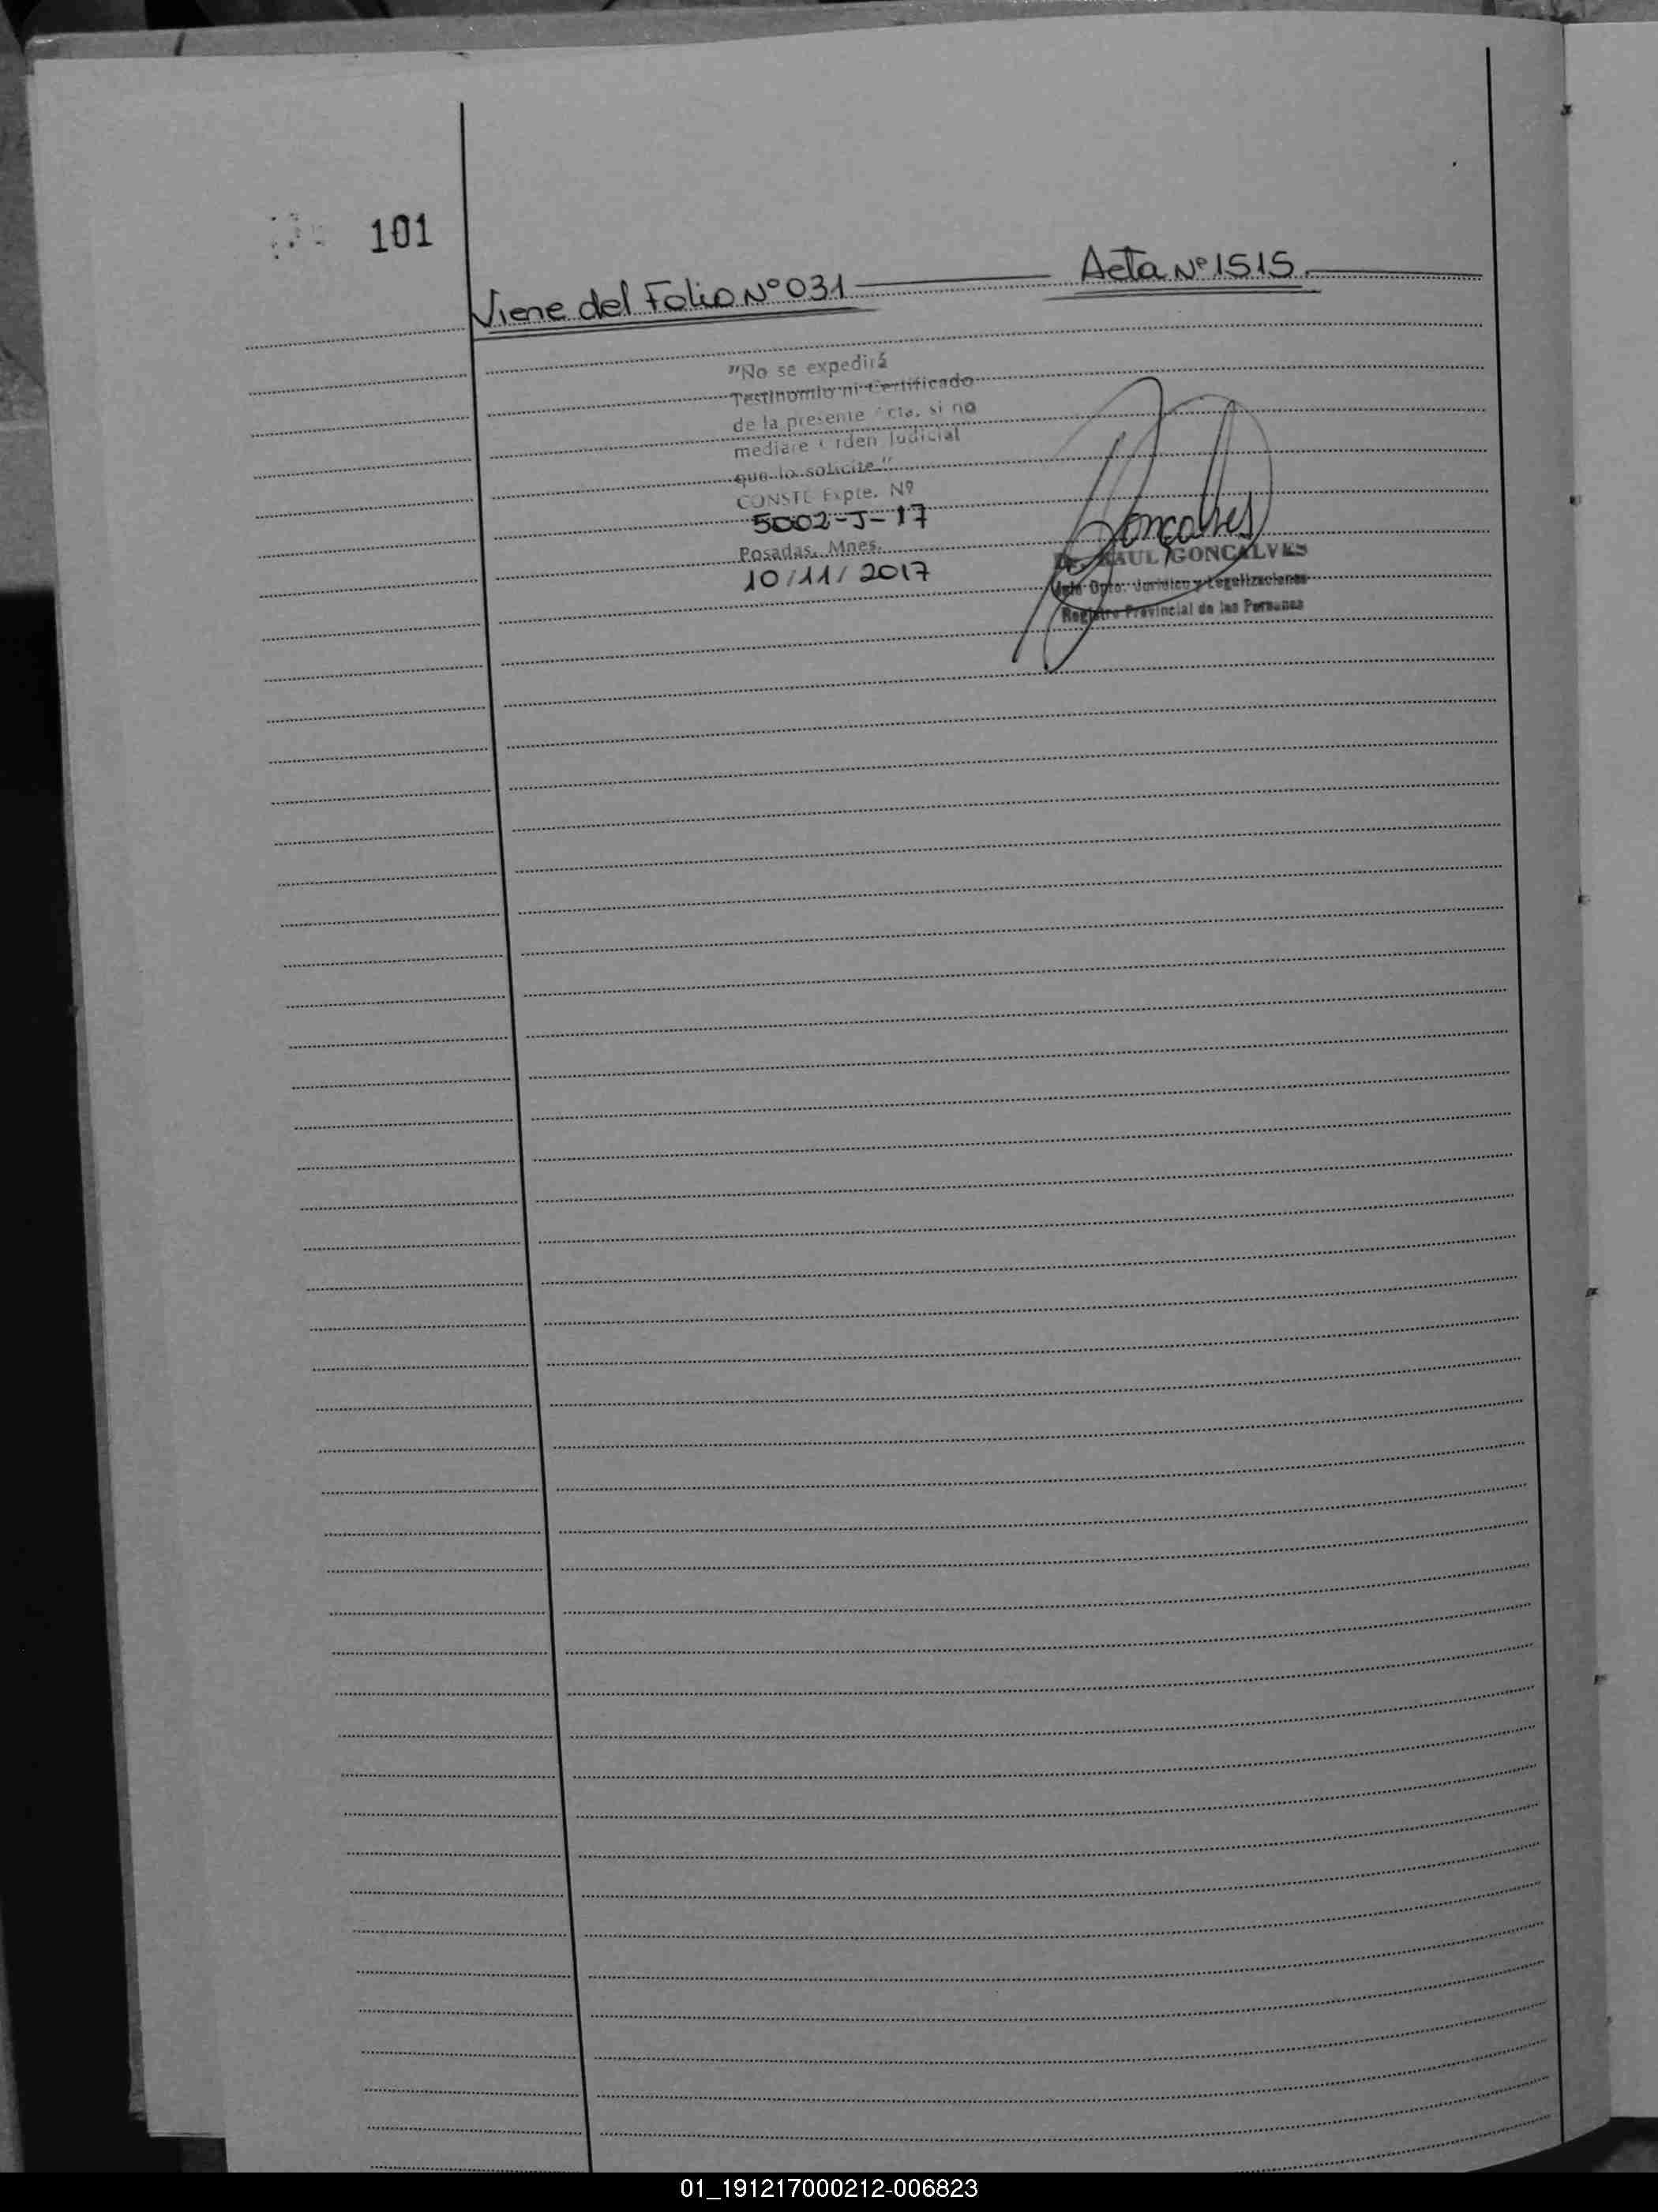 101
Viene del Folio Nº 031 Acta Nº 1515
"No se expedirá
Testimonio ni Certificado
de la presente cta. si no
mediare rden Judicial
que lo solicite"
CONSTE Expte. Nº
5002-J-17
Posadas, Mnes.
10/11/2017
Goncalves
Dr. RAUL GONCALVES
Jefe Dpto. Jurídico y Legalizaciones
Registro Provincial de las Personas
01_191217000212-006823